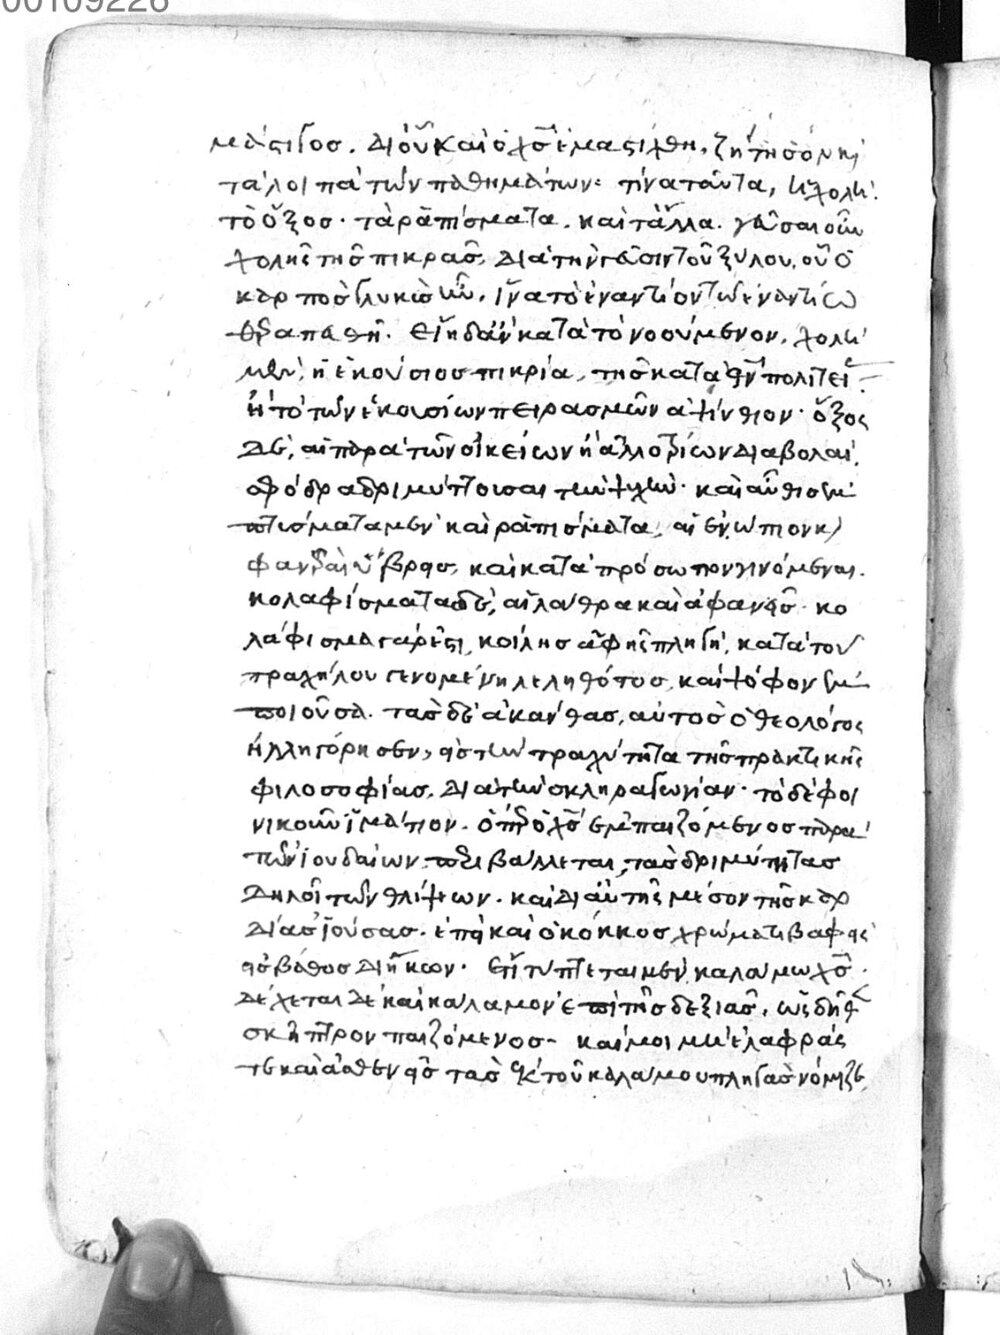 00109226
μάστιγος. δι' οὗ καὶ ὁ χς ἐμαστίχθη. ζήτησον κ
τάλοιπα τῶν παθημάτων· τίνα ταῦτα, ἡ χολὴ.
τὸ ὄξος. τὰ ῥαπίσματα. καὶ τἄλλα. γεῦσαι οὖν
χολῆς τῆς πικρᾶς, διὰ τὴν γεῦσιν τοῦ ξύλου, οὗ ὁ
καρπὸς γλυκὺς ἦν, ἵνα τὸ ἐναντίον τῷ ἐναντίῳ
θεραπευθῇ. εἴη δ' ἂν κατὰ τὸ νοούμενον, χολὴ
μὲν, ἡ ἑκούσιος πικρία, τῆς κατὰ θν πολιτεί
ἢ τὸ τῶν ἑκουσίων πειρασμῶν ἀψίνθιον. ὄξος
δὲ, αἱ παρὰ τῶν οἰκείων ἢ ἀλλοτρίων διαβολαὶ,
σφόδρα δριμύττουσαι τὴν ψυχὴν. καὶ αὖθις ἐμ
πτύσματα μὲν καὶ ῥαπίσματα, αἱ ἐνώπιον κ
φανεραὶ ὕβρεις, καὶ κατὰ πρόσωπον γινόμεναι.
κολαφίσματα δὲ, αἱ λάθρα καὶ ἀφανεῖς. κο
λάφισμα γάρ ἐστι, κοίλης ἁφῆς πληγὴ, κατὰ τοῦ
τραχήλου γενομένη λεληθότως, καὶ ψόφον ἐμ
ποιοῦσα. τὰς δὲ ἀκάνθας, αὐτὸς ὁ θεολόγος
ἠλληγόρησεν, εἰς τὴν τραχύτητα τῆς πρακτικῆς
φιλοσοφίας, διὰ τὴν σκληραγωγίαν. τὸ δὲ φοι
νικοῦν ἱμάτιον. ὅπερ ὁ χς ἐμπαιζόμενος παρὰ
τῶν ἰουδαίων περιβάλλεται, τὰς δριμύτητας
δηλοῖ τῶν θλίψεων. καὶ δι' αὐτῆς μέσον τῆς καρ
δίας ἰούσας. ἐπεὶ καὶ ὁ κόκκος χρώματι βαφῆς
εἰς βάθος διήκων. εἶτα τύπτεται μὲν καλάμῳ χς.
δέχεται δὲ καὶ κάλαμον ἐπὶ τῆς δεξιᾶς, ὡς δῆθεν
σκῆπτρον παιζόμενος. καί μοι μὴ ἐλαφράς
τε καὶ ἀσθενεῖς τὰς ἐκ τοῦ καλάμου πληγὰς νόμιζε,